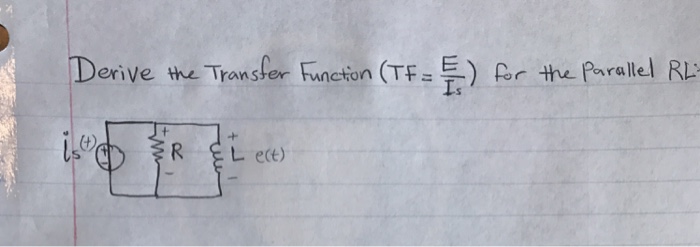 Derive the Transfer Function (TF = E/Is) for the Parallel RL
is(t) + R + L e(t)